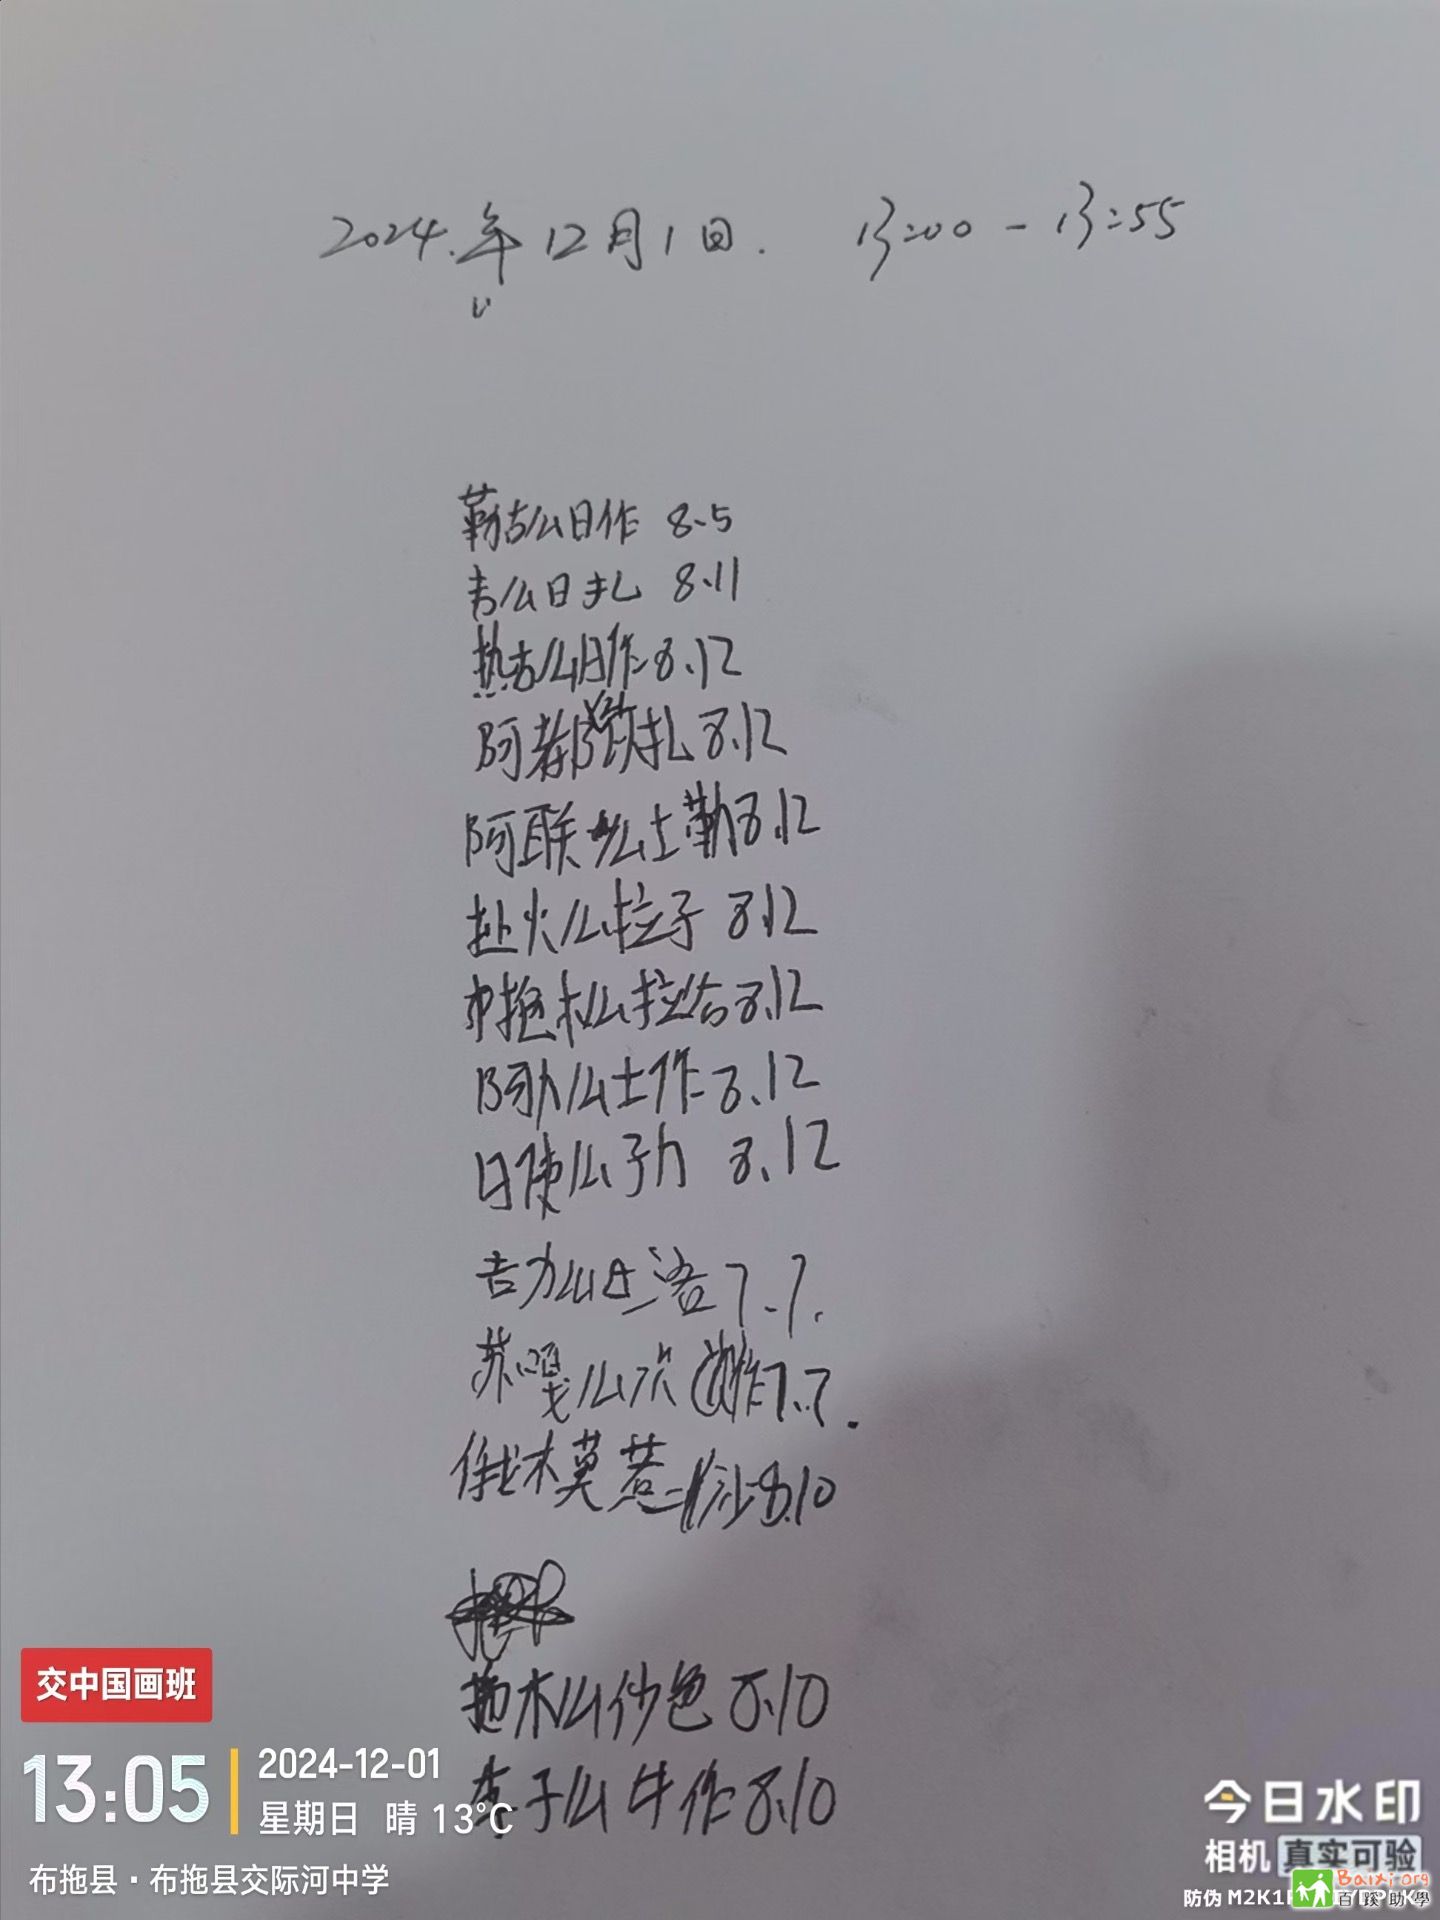 2024.年12月1日. 13:00-13:55
勒古么日作 8.5
吉么日扎 8.11
热古么日作 8.12
阿都 扎 8.12
阿联么土勒 8.12
赴火么拉子 8.12
拖木么拉 8.12
阿 么土作 8.12
日使么子力 8.12
吉力么 洛 7.7.
苏嘎么次 作 7.7.
俄木莫惹 8.10
拖木么伙色 8.10
子么牛作 8.10
交中国画班
13:05
2024-12-01
星期日 晴 13°C
布拖县·布拖县交际河中学
今日水印
相机 真实可验
防伪 M2K1
Baixi.org
百蹊助學